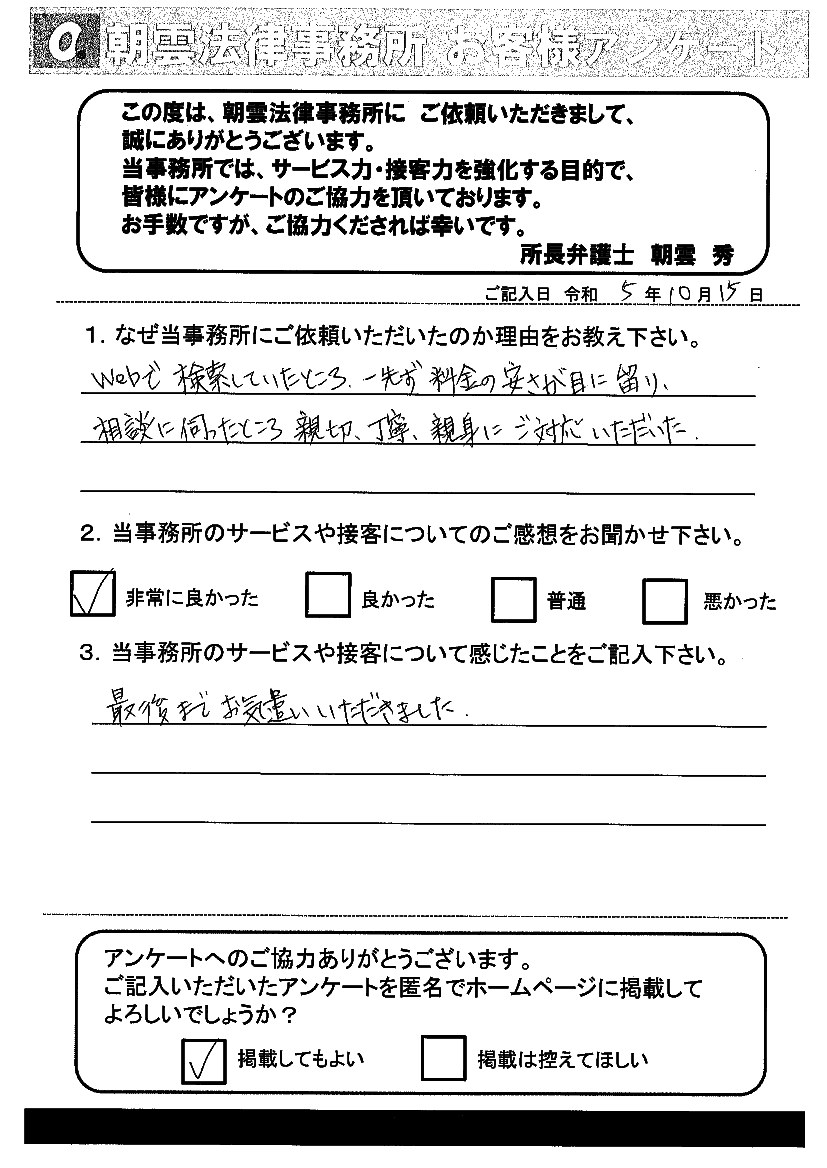 朝雲法律事務所 お客様アンケート
この度は、朝雲法律事務所に ご依頼いただきまして、
誠にありがとうございます。
当事務所では、サービス力・接客力を強化する目的で、
皆様にアンケートのご協力を頂いております。
お手数ですが、ご協力くだされば幸いです。
所長弁護士 朝雲 秀
ご記入日 令和 5 年 10 月 15 日
1. なぜ当事務所にご依頼いただいたのか理由をお教え下さい。
Webで 検索していたところ、一先ず 料金の安さが目に留り、
相談に伺ったところ 親切、丁寧、親身に ご対応いただいた.
2. 当事務所のサービスや接客についてのご感想をお聞かせ下さい。
非常に良かった 良かった 普通 悪かった
3. 当事務所のサービスや接客について感じたことをご記入下さい。
最後まで お気遣いいただきました.
アンケートへのご協力ありがとうございます。
ご記入いただいたアンケートを匿名でホームページに掲載して
よろしいでしょうか？
掲載してもよい 掲載は控えてほしい